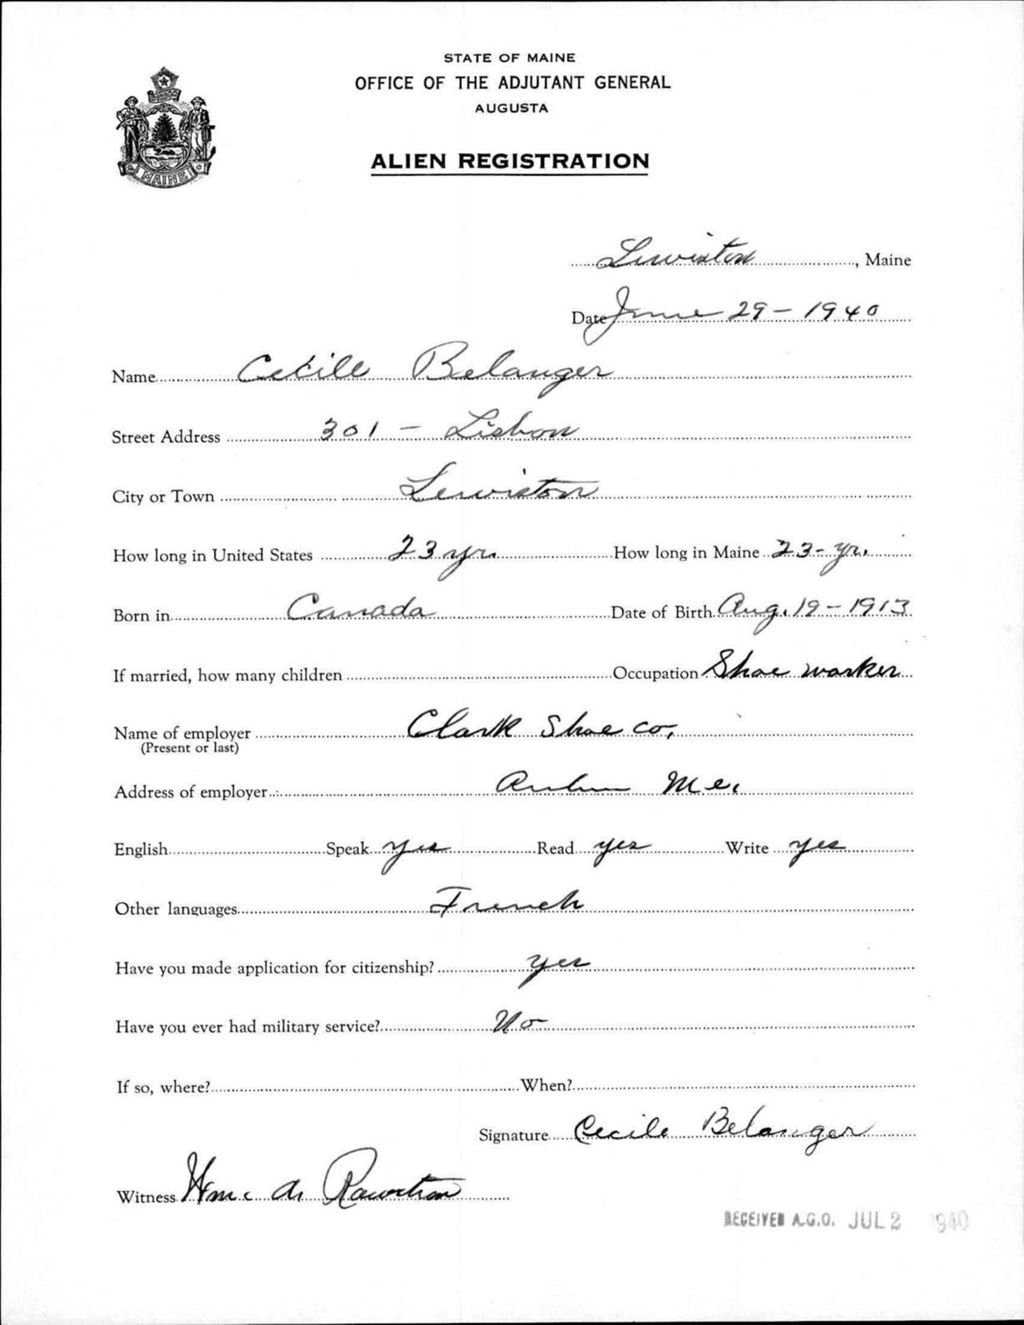 STATE OF MAINE
OFFICE OF THE ADJUTANT GENERAL
AUGUSTA
ALIEN REGISTRATION
MAINE
Lewiston, Maine
Date June 29 - 1940
Name Cecile Belanger
Street Address 301 - Lisbon
City or Town Lewiston
How long in United States 23 yr. How long in Maine 23 - yr.
Born in Canada Date of Birth Aug. 19 - 1913
If married, how many children Occupation Shoe worker
Name of employer Clark Shoe Co.
(Present or last)
Address of employer Auburn Me.
English Speak yes Read yes Write yes
Other languages French
Have you made application for citizenship? yes
Have you ever had military service? No
If so, where? When?
Signature Cecile Belanger
Witness
RECEIVED A.G.O. JUL 2 1940